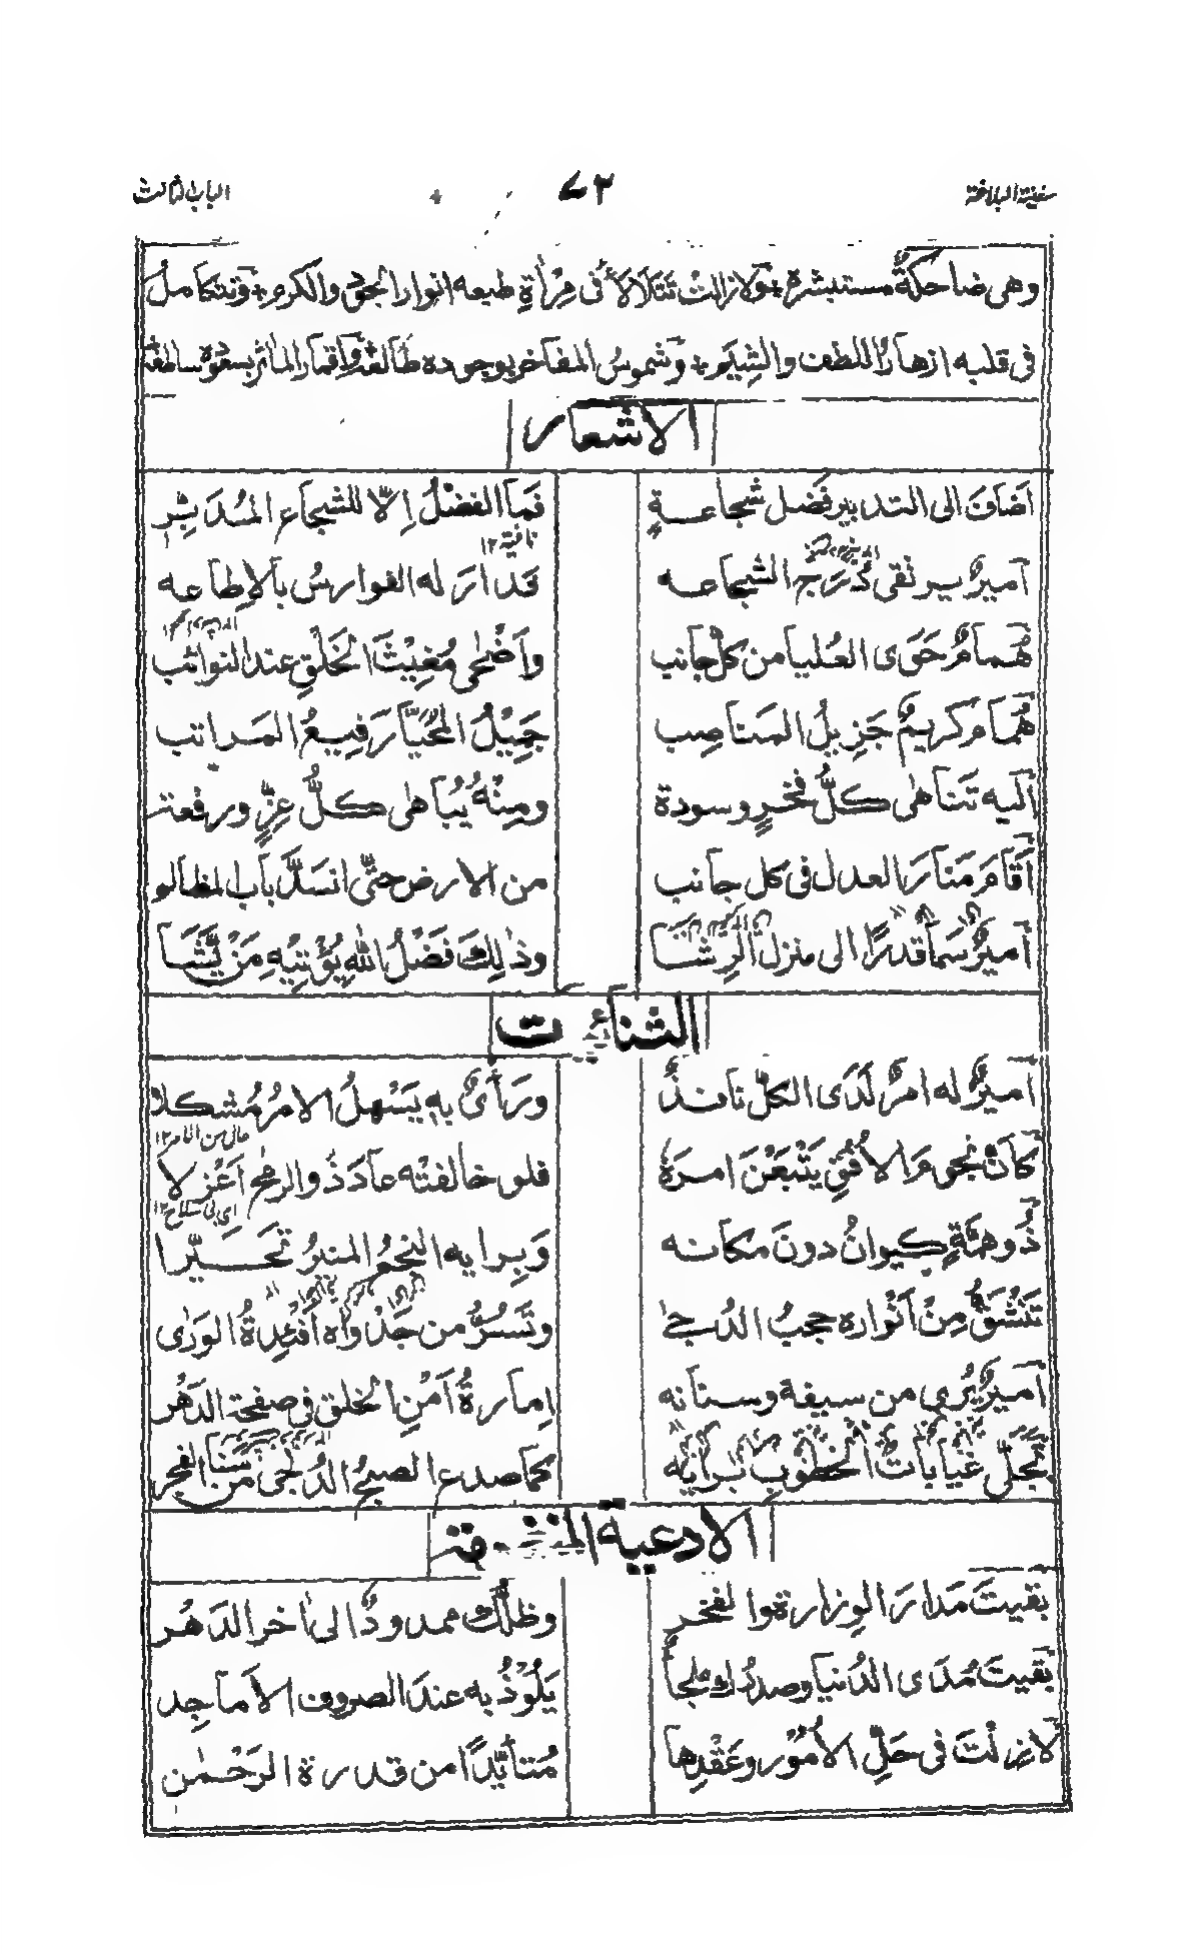 سفينة البلاغة ٧٢ الباب الثالث
وهى ضاحكةٌ مستبشرة + ولازالتْ تتلألأُ فى مِرْأةِ طبعه انوار الجود والكرم + وتتكامل
فى قلبه ازهارُ اللطف والشِيَم + وشموسُ المفاخر بوجوده طالعة واقمار المأثر بسعوده ساطعة
الاشعار
اَضافَ الى التدبير فضل شجاعةٍ فَمَا الفضْلُ اِلّا للشجاع المُدَبِّرِ
نافية ١٢
اَميرٌ يرتقى دُرَج الشجاعه قد ادارَ له الفوارسُ بالاِطاعه
هُمامٌ حَوَى العُليا من كلّ جانب واَضْحٰى مُغِيْثَ الخَلْقِ عند النوائب
هُمام كريمٌ جَزِيلُ المناصِب جَمِيْلُ المُحَيَّا رَفيعُ المراتب
اليه تَنَاهٰى كلُّ فخرٍ وسودة ومِنْهُ يُبَاهٰى كلُّ عِزٍّ ورفعة
اَقَامَ مَنَارَ العدل فى كل جانب من الارض حتّٰى انسَدَّ باب المظالم
اَميرٌ سَما قدرًا الى منزل الرشا وذٰلِكَ فَضْلُ اللّٰهِ يُؤْتِيْهِ مَنْ يَّشَا
الثنائيات
اَميرٌ له امرٌ لَدَى الكلّ نافذٌ ورَأىٌ بهٖ يَسْهلُ الامرُ مُشكلا
حال من الامر ١٢
كأنّ نجومَ الاُفُقِ يَتْبَعْنَ امرَهٗ فلو خالفتْه عادَ ذُو الرمحِ اَعْزلا
اى بى سلاح ١٢
ذُو هِمَّةٍ كيوانُ دونَ مكانه وَبِرايه النجمُ المنيرُ تحَيَّرا
تَنْشَقُّ مِنْ اَنْواره حجبُ الدُجىٰ وتَسُرُّ من جَدْواه اَفْئِدةُ الوَرٰى
اَميرٌ يُرى من سيفه وسنانه اِمارةُ اَمْنِ الخلق فى صفحة الدَهْر
تَجَلّٰى غَيابَاتُ الخطُوبِ بَرأيه كما صدع الصبحُ الدُجىٰ من سَنا الفجر
الادعية المتفرقة
بقيتَ مَدارَ الوِزارة والفخر وظلُّكَ ممدودٌ الى اٰخر الدَهْر
بَقيتَ مَدَى الدُنيا وصدرُك ملجأ يَلُوْذُ به عندَ الصروف الاماجِد
لازِلْتَ فى حَلِّ الاُمُوْر وعَقْدِها مُتأيِّدًا من قدرة الرَحْمٰن